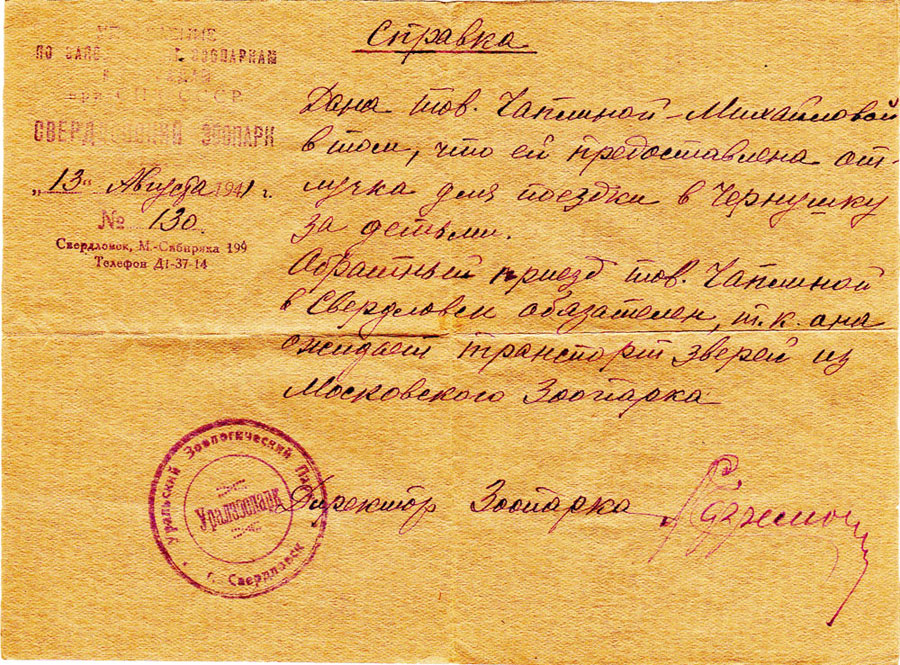 Справка
по зоопаркам
при СНК СССР
СВЕРДЛОВСКИЙ ЗООПАРК
„13“ Августа 1941 г.
№ 130.
Свердловск, М.-Сибиряка 199
Телефон Д1-37-14
Дана тов. Чаплиной-Михайловой
в том, что ей предоставлена от-
лучка для поездки в Чернушку
за детьми.
Обратный приезд тов. Чаплиной
в Свердловск обязателен, т.к. она
ожидает транспорт зверей из
Московского Зоопарка
Директор Зоопарка
Уральский Зоологический Парк
Уралзоопарк
г. Свердловск